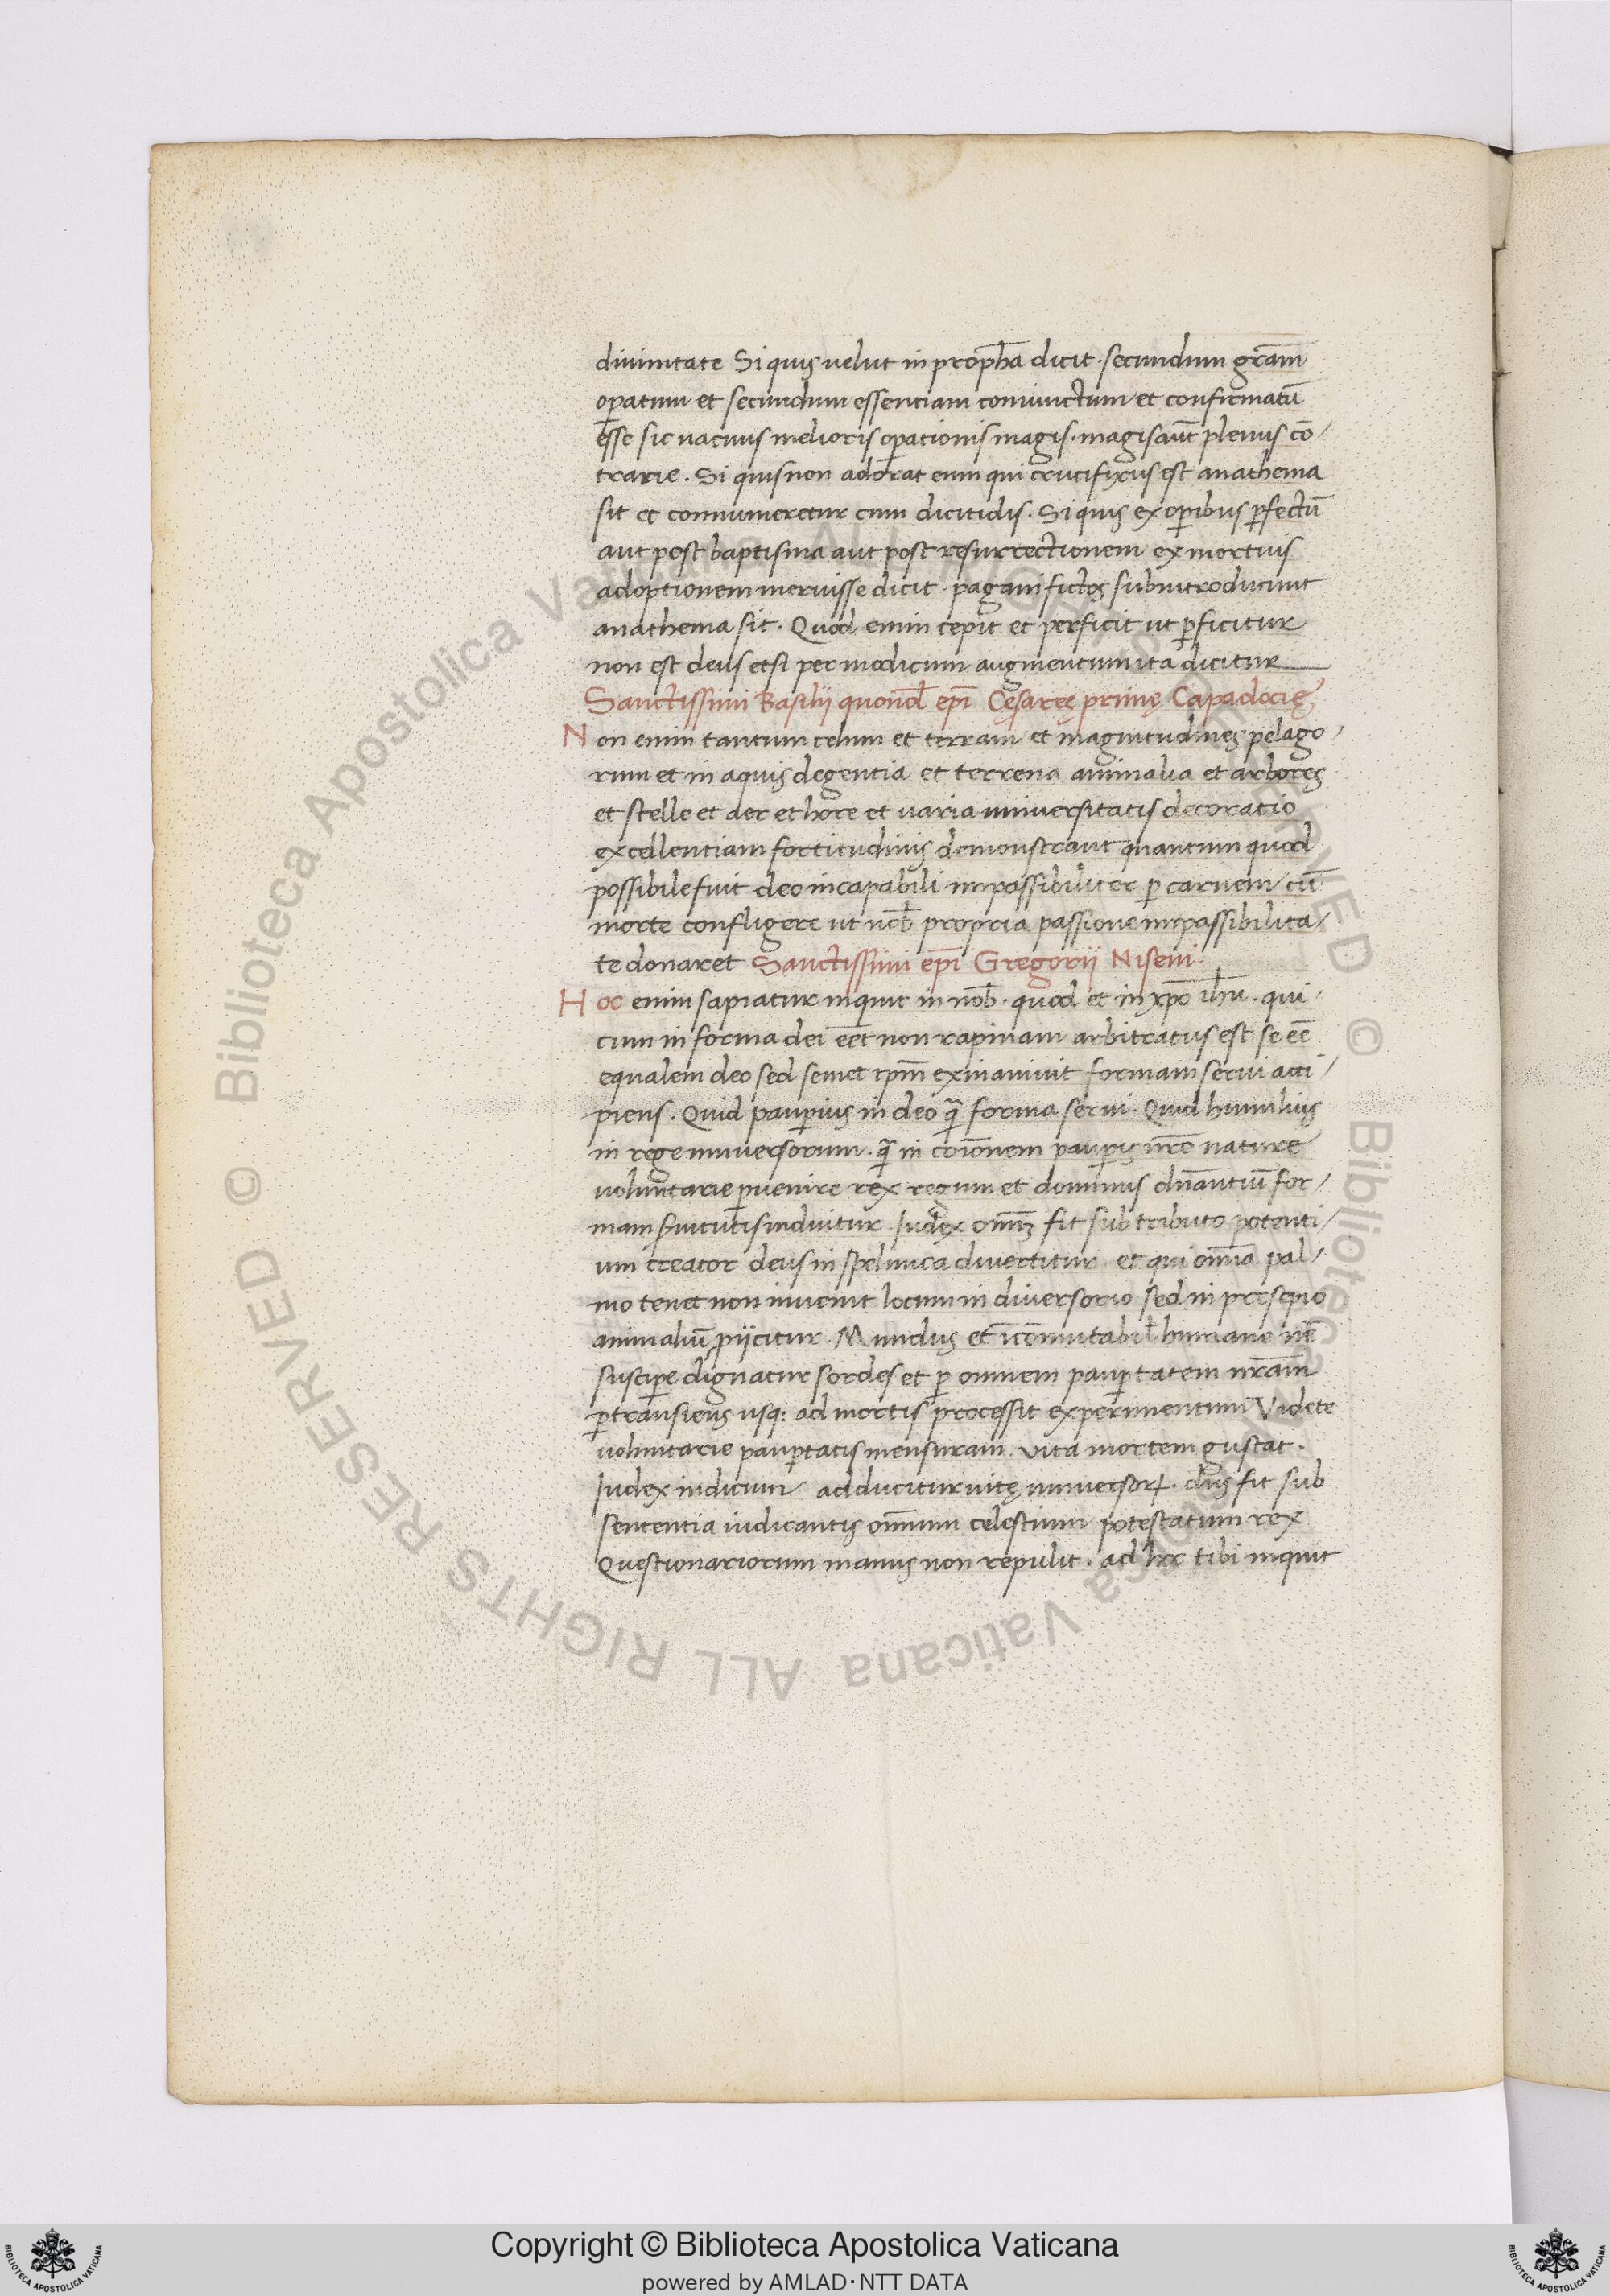 diuinitate Si quis uelut in proph̄a dicit · secundum gr̄am
op̄atum et secundum essentiam coniunctum et confirmatū
esse sic uacuus melioris op̄ationis magis · magis aūt plenus cō/
trarie . Si quis non adorat eum qui crucifixus est anathema
sit et connumeretur cum dicitidis . Si quis ex op̄ibus p̄fectū
aut post baptisma aut post resurrectionem ex mortuis
adoptionem meruisse dicit · pagani fictos subintroducunt
anathema sit . Quod enim cepit et perficit ut p̄ficitur
non est deus etsi per modicum augmentum ita dicitur
Sanctissimi Basilij quond̄ ep̄i Cęsaręę primę Capadocię
Non enim tantum celum et terram et magnitudines pelago/
rum et in aquis degentia et terrena animalia et arbores
et stelle et aer et hore et uaria uniuersitatis decoratio
excellentiam fortitudinis demonstrant quantum quod
possibile fuit deo incapabili impassibiliter p̱ carnem cū
morte confligere ut nob̄ propria passione impassibilita/
te donaret Sanctissimi ep̄i Gregorij Niseni·
Hoc enim sapiatur inquit in nob̄ · quod et in xp̄o ih̄u . qui/
cum in forma dei eēt non rapinam arbitratus est se eē
equalem deo sed semet ip̄m exinaniuit formam serui acci/
piens . Quid paup̄ius in deo q̄ forma serui · Quid humilius
in rege uniuersorum · q̄ in cōionem paup̄is nr̄e nature
uoluntarie p̱uenire rex regum et dominus dn̄antiū for/
mam s̄uitutis induitur Iudex om̄iū fit sub tributo potenti/
um creator deus in spelunca diuertitur et qui om̄ia pal/
mo tenet non inuenit locum in diuersorio sed in presepio
animaliū ꝓijcitur . Mundus et īcōmutabil̄ humane nē
suscip̄e dignatur sordes et p̱ omnem paup̄tatem nr̄am
p̱transiens usq: ad mortis processit experimentum Videte
uoluntarie paup̄tatis mensuram . Vita mortem gustat .
Iudex iudicum adducitur uitę uniuersoꝝ . dn̄s fit sub
sententia iudicantis om̄ium celestium potestatum rex
Questionariorum manus non repulit . ad hoc tibi inquit
Copyright © Biblioteca Apostolica Vaticana
powered by AMLAD·NTT DATA